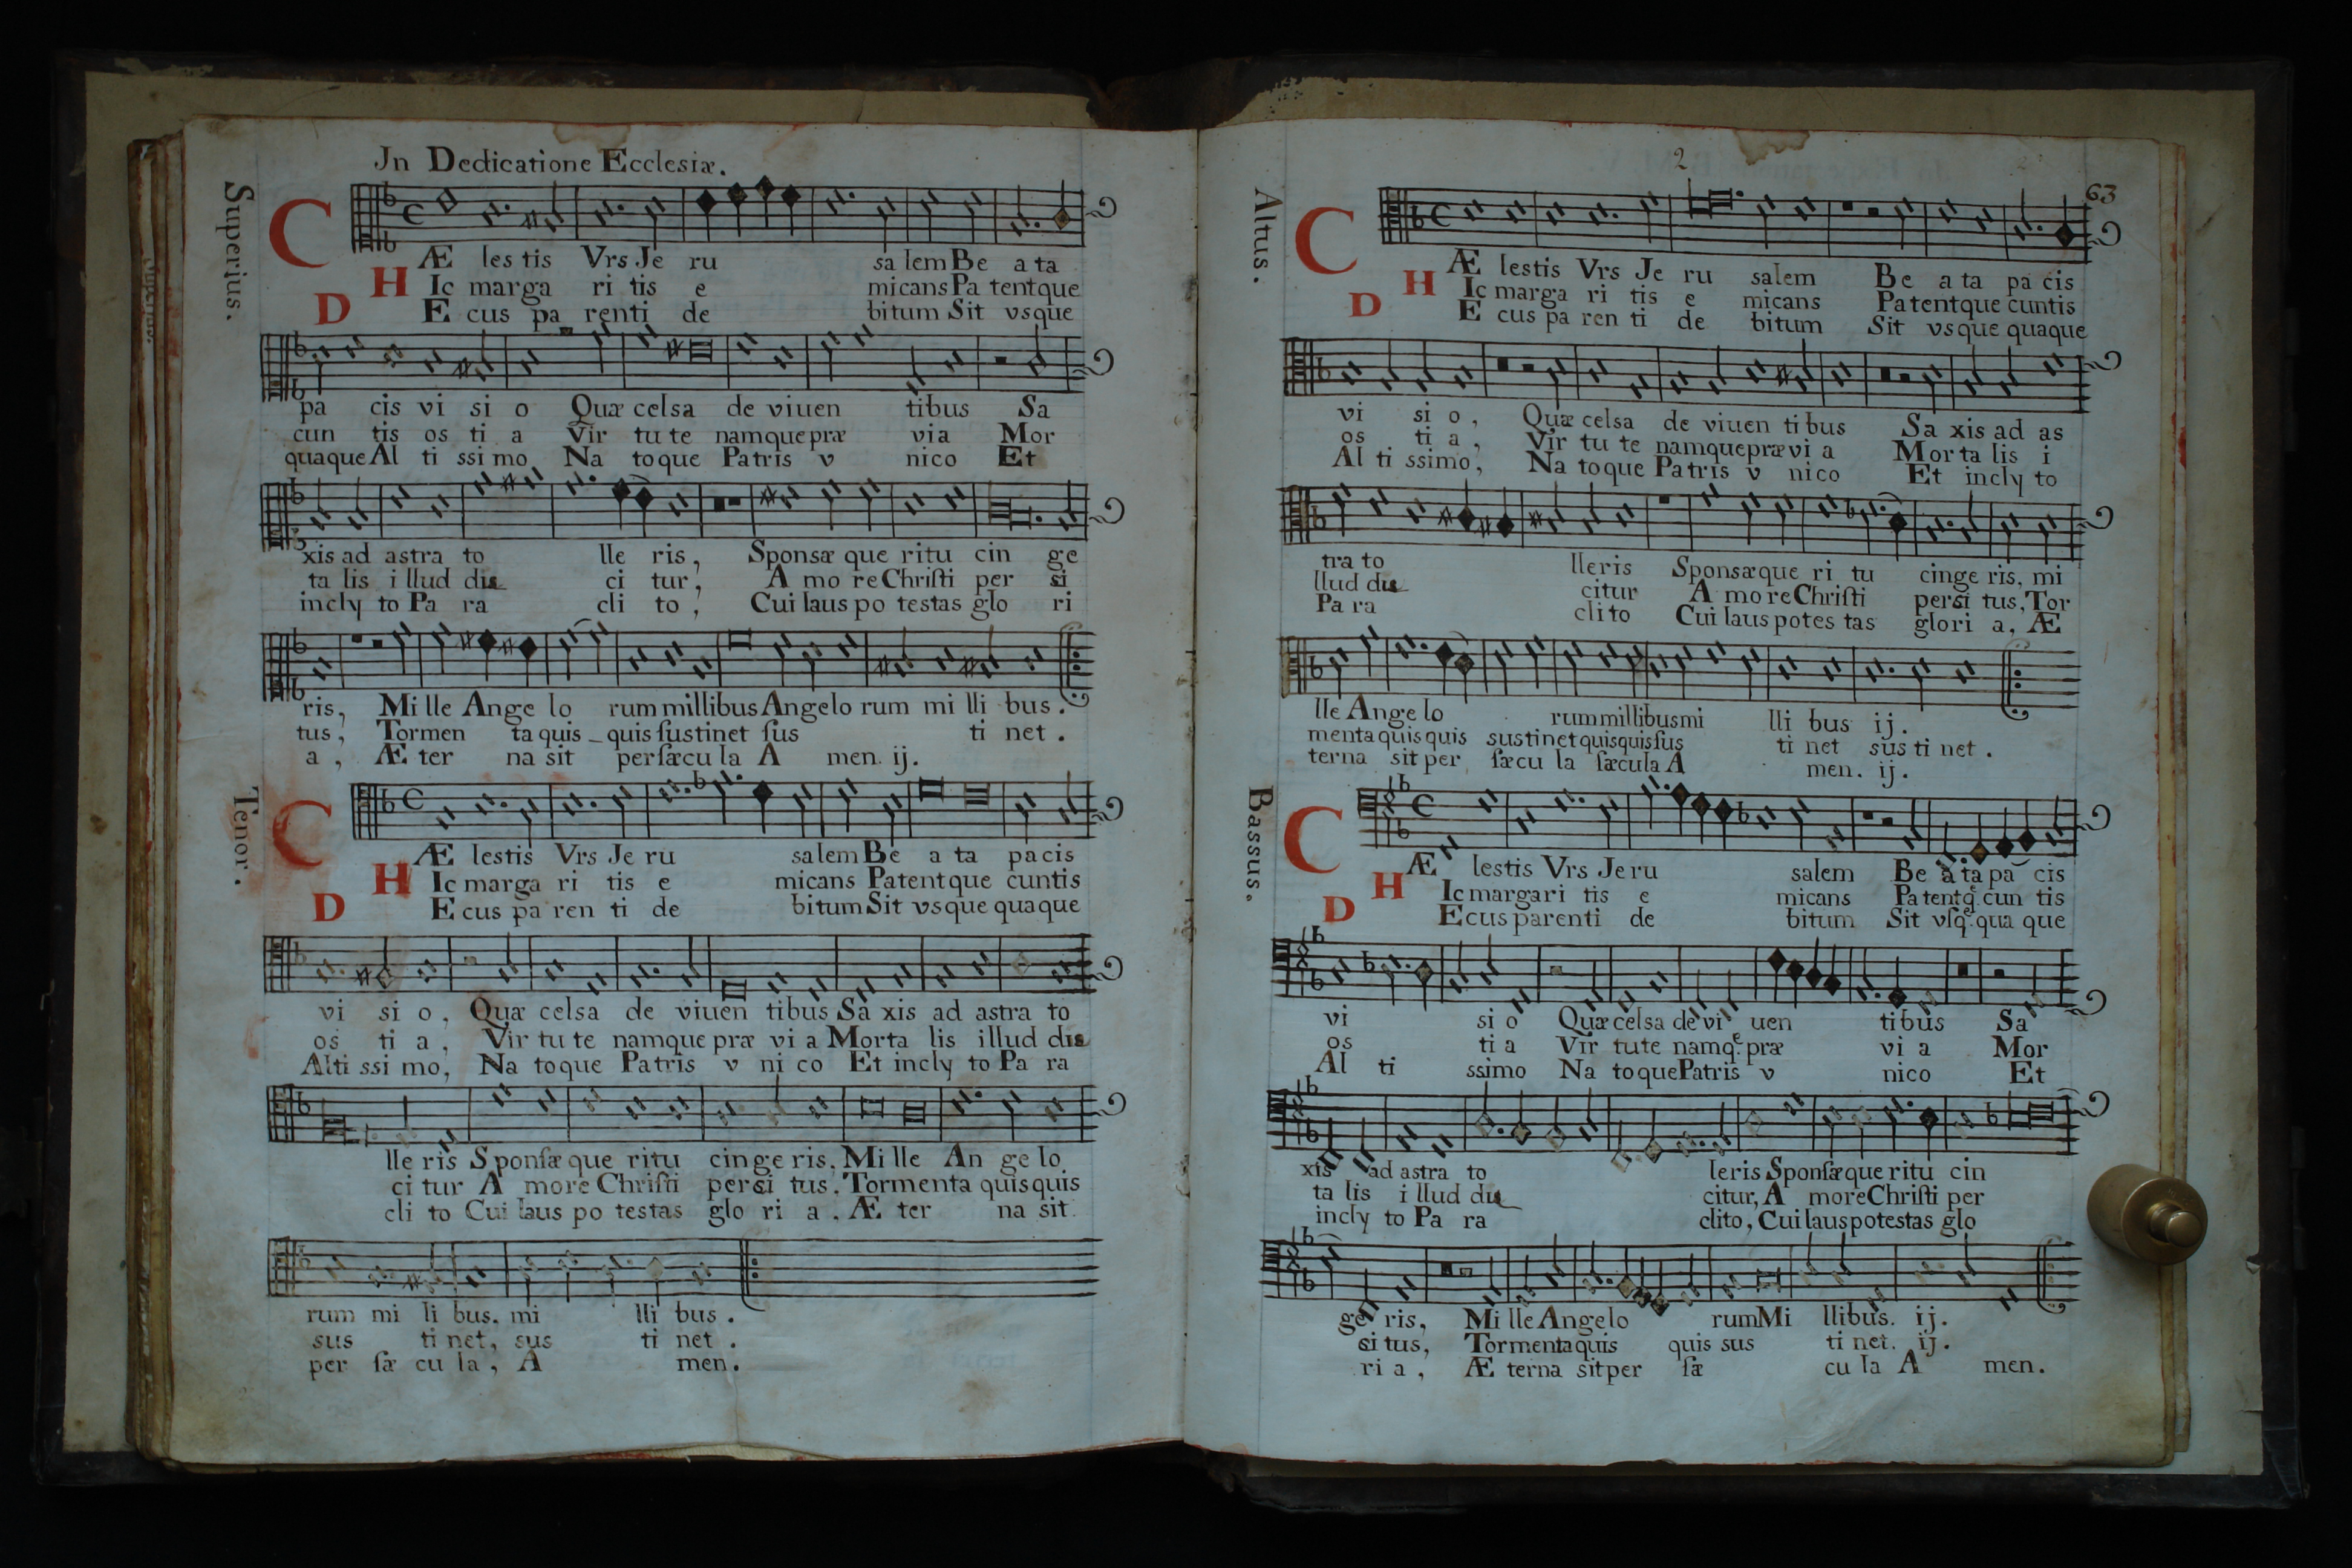 Jn Dedicatione Ecclesiæ.
Superius.
C Æ les tis Vrs Je ru sa lem Be a ta
H Ic marga ri tis e micans Pa tentque
D E cus pa renti de bitum Sit vsque
pa cis vi si o Quæ celsa de viuen tibus Sa
cun tis os ti a Vir tu te namque præ via Mor
quaque Al ti ssi mo Na toque Patris v nico Et
xis ad astra to lle ris, Sponsæ que ritu cin ge
ta lis i llud dis ci tur, A mo re Christi per si
incly to Pa ra cli to, Cui laus po testas glo ri
ris, Mi lle Ange lo rum millibus Angelo rum mi lli bus.
tus, Tormen ta quis quis sustinet sus ti net.
a, Æ ter na sit per sæcu la A men. ij.
Tenor.
C Æ lestis Vrs Je ru salem Be a ta pacis
H Ic marga ri tis e micans Patentque cuntis
D E cus pa ren ti de bitum Sit vsque quaque
vi si o, Quæ celsa de viuen tibus Sa xis ad astra to
os ti a, Vir tu te namque præ vi a Morta lis illud dis
Alti ssi mo, Na toque Patris v ni co Et incly to Pa ra
lle ris Sponsæ que ritu cinge ris, Mi lle An ge lo
ci tur A more Christi persi tus, Tormenta quisquis
cli to Cui laus po testas glo ri a, Æ ter na sit
rum mi li bus. mi lli bus.
sus ti net, sus ti net.
per sæ cu la, A men.
2
63
Altus.
C Æ lestis Vrs Je ru salem Be a ta pa cis
H Ic marga ri tis e micans Pa tentque cuntis
D E cus pa ren ti de bitum Sit vsque quaque
vi si o, Quæ celsa de viuen tibus Sa xis ad as
os ti a, Vir tu te namque præ vi a Mor ta lis i
Al ti ssimo, Na toque Patris v nico Et incly to
tra to lleris Sponsæque ri tu cinge ris, mi
llud dis citur A mo re Christi persi tus, Tor
Pa ra clito Cui laus potes tas glori a, Æ
lle Ange lo rum millibus mi lli bus ij.
menta quisquis sustinet quisquis sus ti net sus ti net.
terna sit per sæcu la sæcula A men. ij.
Bassus.
C Æ lestis Vrs Je ru salem Be a ta pa cis
H Ic margari tis e micans Pa tentq. cun tis
D Ecus parenti de bitum Sit vsq. qua que
vi si o Quæ celsa de vi uen tibus Sa
os ti a Vir tute namq. præ vi a Mor
Al ti ssimo Na toque Patris v nico Et
xis ad astra to leris Sponsæque ritu cin
ta lis i llud dis citur, A more Christi per
incly to Pa ra clito, Cui laus potestas glo
ge ris, Mi lle Angelo rum Mi llibus. ij.
si tus, Tormenta quis quis sus ti net. ij.
ri a, Æ terna sit per sæ cu la A men.